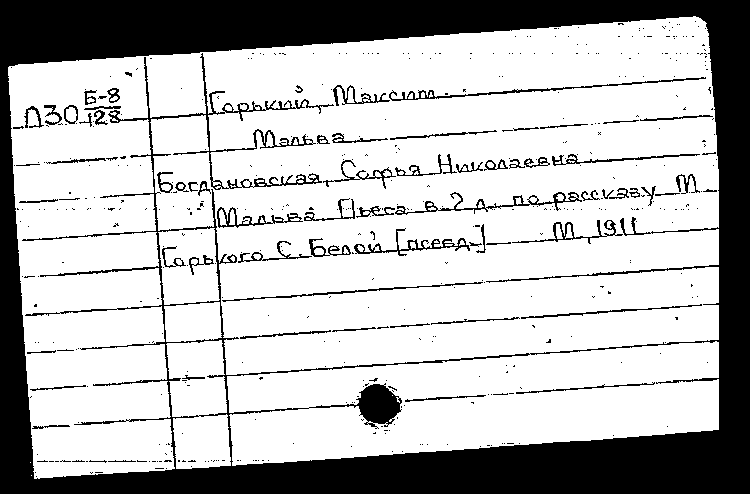 П30 Б-8/128
Горький, Максим.
Мальва.
Богдановская, Софья Николаевна.
Мальва. Пьеса в 2 д. по рассказу М.
Горького С. Белой [псевд.] М, 1911